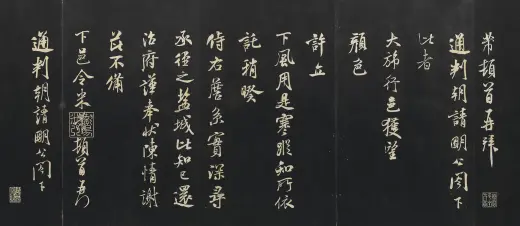 芾頓首再拜
通判朝請明公閤下
比者
大旆行邑獲望
顔色
許立
下風用是寒蹤知所依
託稍暌
侍右詹系實深尋
承徑之盐城比知已還
治府謹奉状陳情謝
不備
下邑令米頓首再拜
通判朝請明公閤下